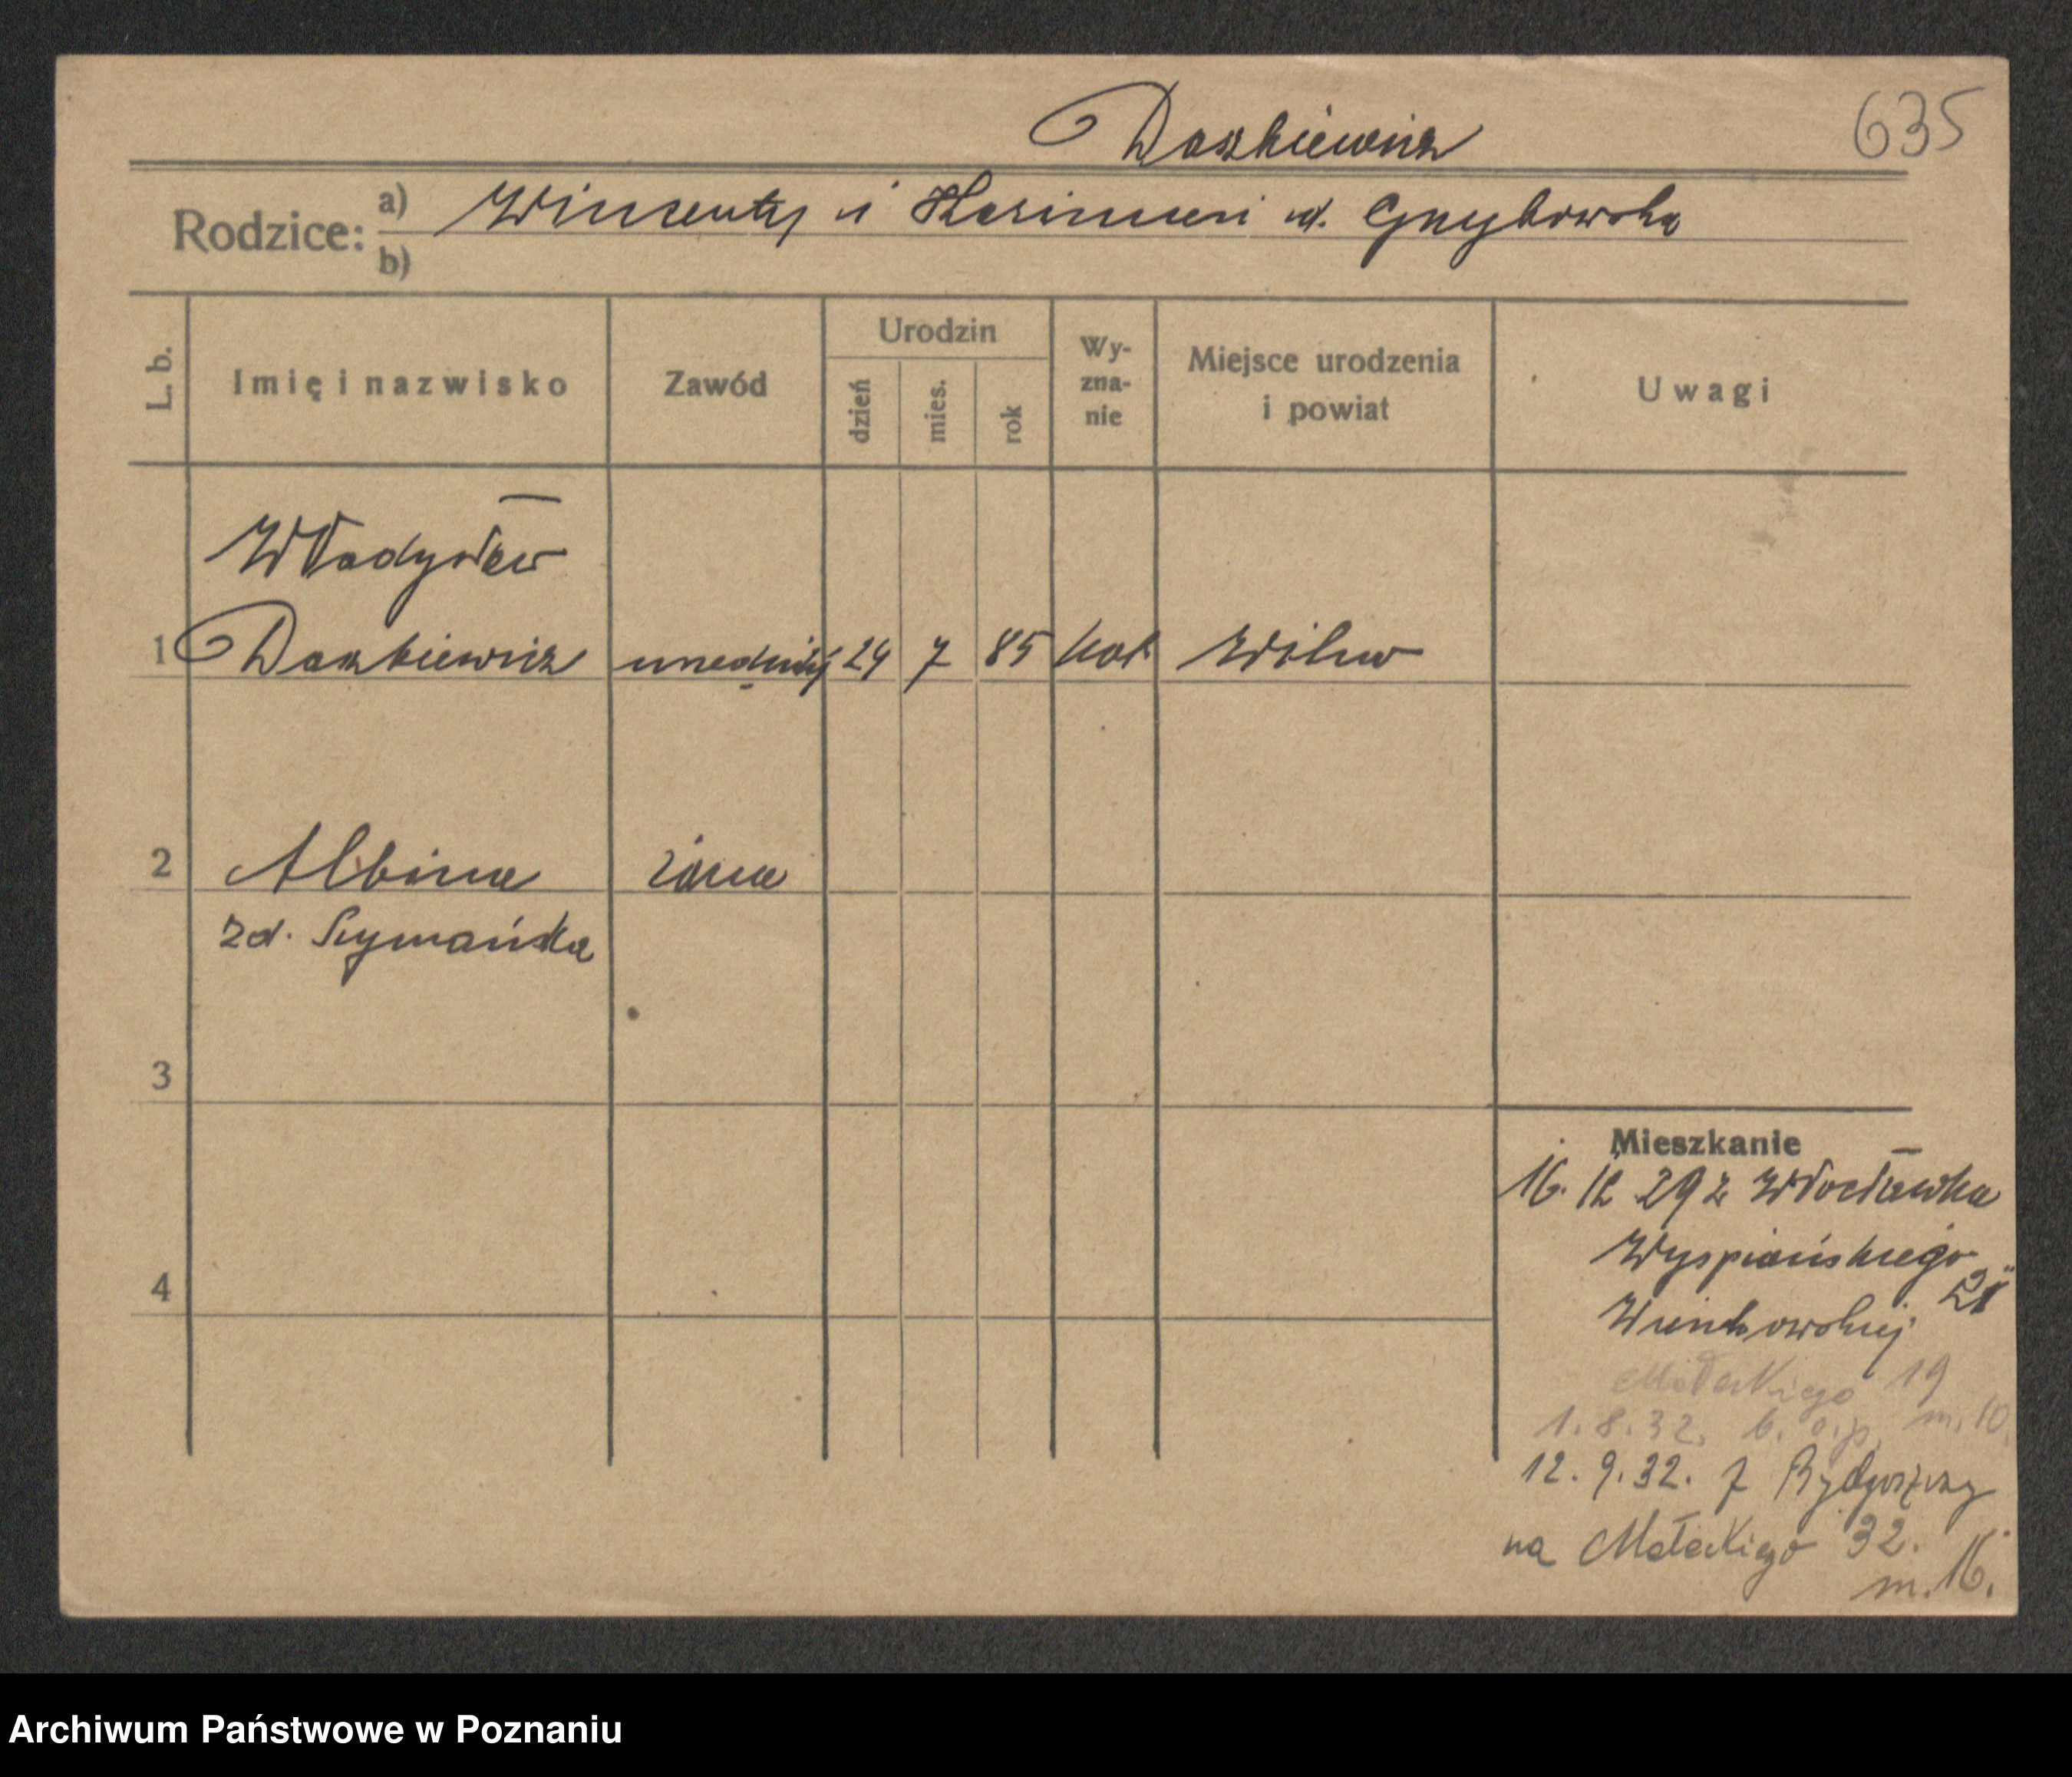 Daszkiewicz
635
Rodzice:
a) Wincenty i Kazimiera zd. Grzybowska
b)
L. b.
Imię i nazwisko
Zawód
Urodzin
dzień
mies.
rok
Wy-
zna-
nie
Miejsce urodzenia
i powiat
Uwagi
Władysław
1 Daszkiewicz 24 7 85 kat. Wilno
2 Albina żona
zd. Szymańska
3
4
Mieszkanie
16. 12 29 z Włocławka
Wyspiańskiego
21
Małeckiego 19
1.8.32. m. 10.
12.9.32. z Bydgoszczy
na Małeckiego 32.
m. 16.
Archiwum Państwowe w Poznaniu